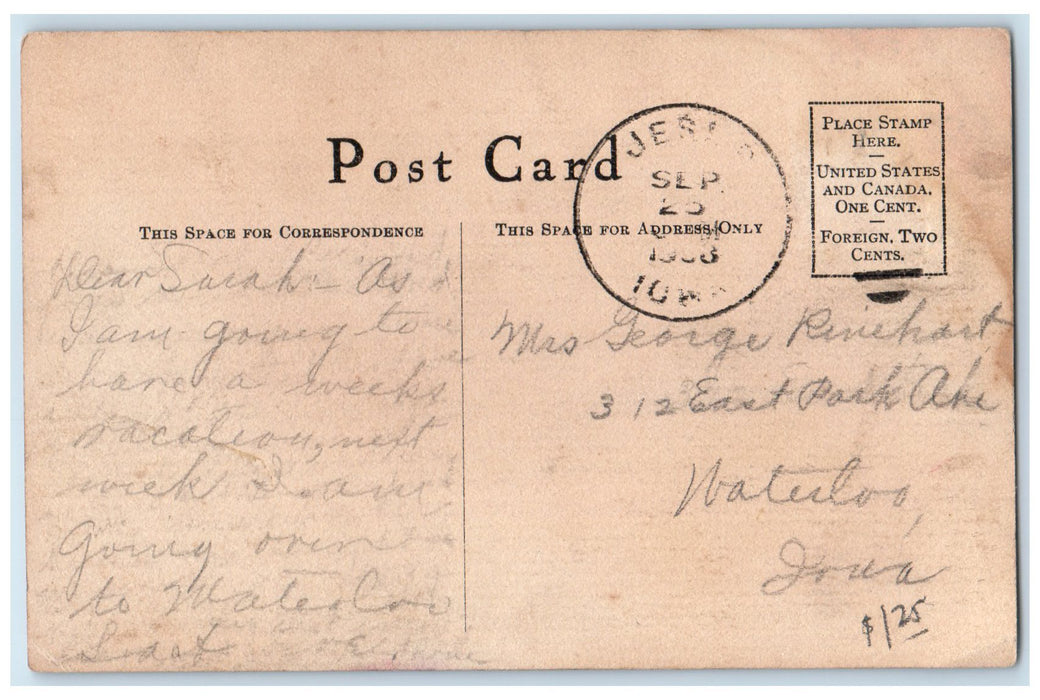 Post Card
THIS SPACE FOR CORRESPONDENCE
THIS SPACE FOR ADDRESS ONLY
PLACE STAMP
HERE.
UNITED STATES
AND CANADA,
ONE CENT.
FOREIGN, TWO
CENTS.
SEP
25
IOWA
Dear Sarah:- As
I am going to
have a weeks
vacation, next
week I am
Going over
to Waterloo
Mrs George Rinehart
312 East Park Ave
Waterloo,
Iowa
$1 25